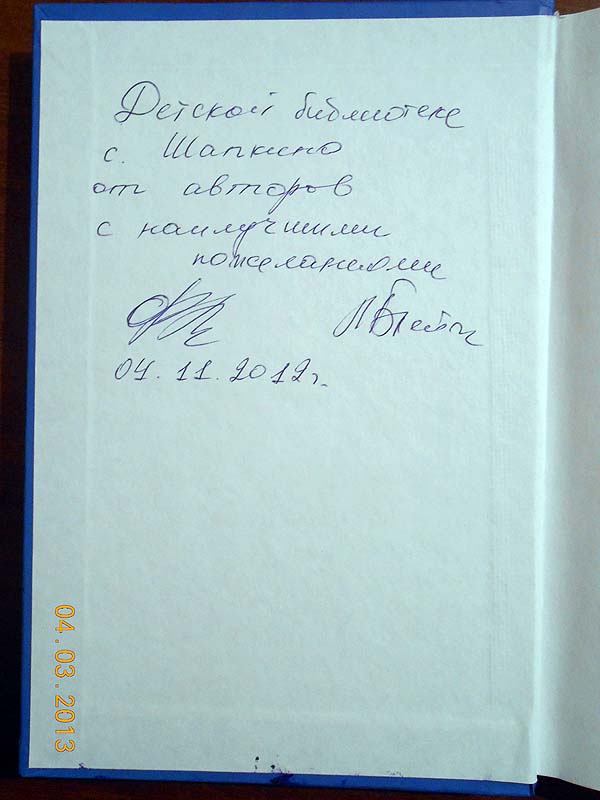 Детской библиотеке
с. Шапкино
от авторов
с наилучшими
пожеланиями
04.11.2012г.
04.03.2013